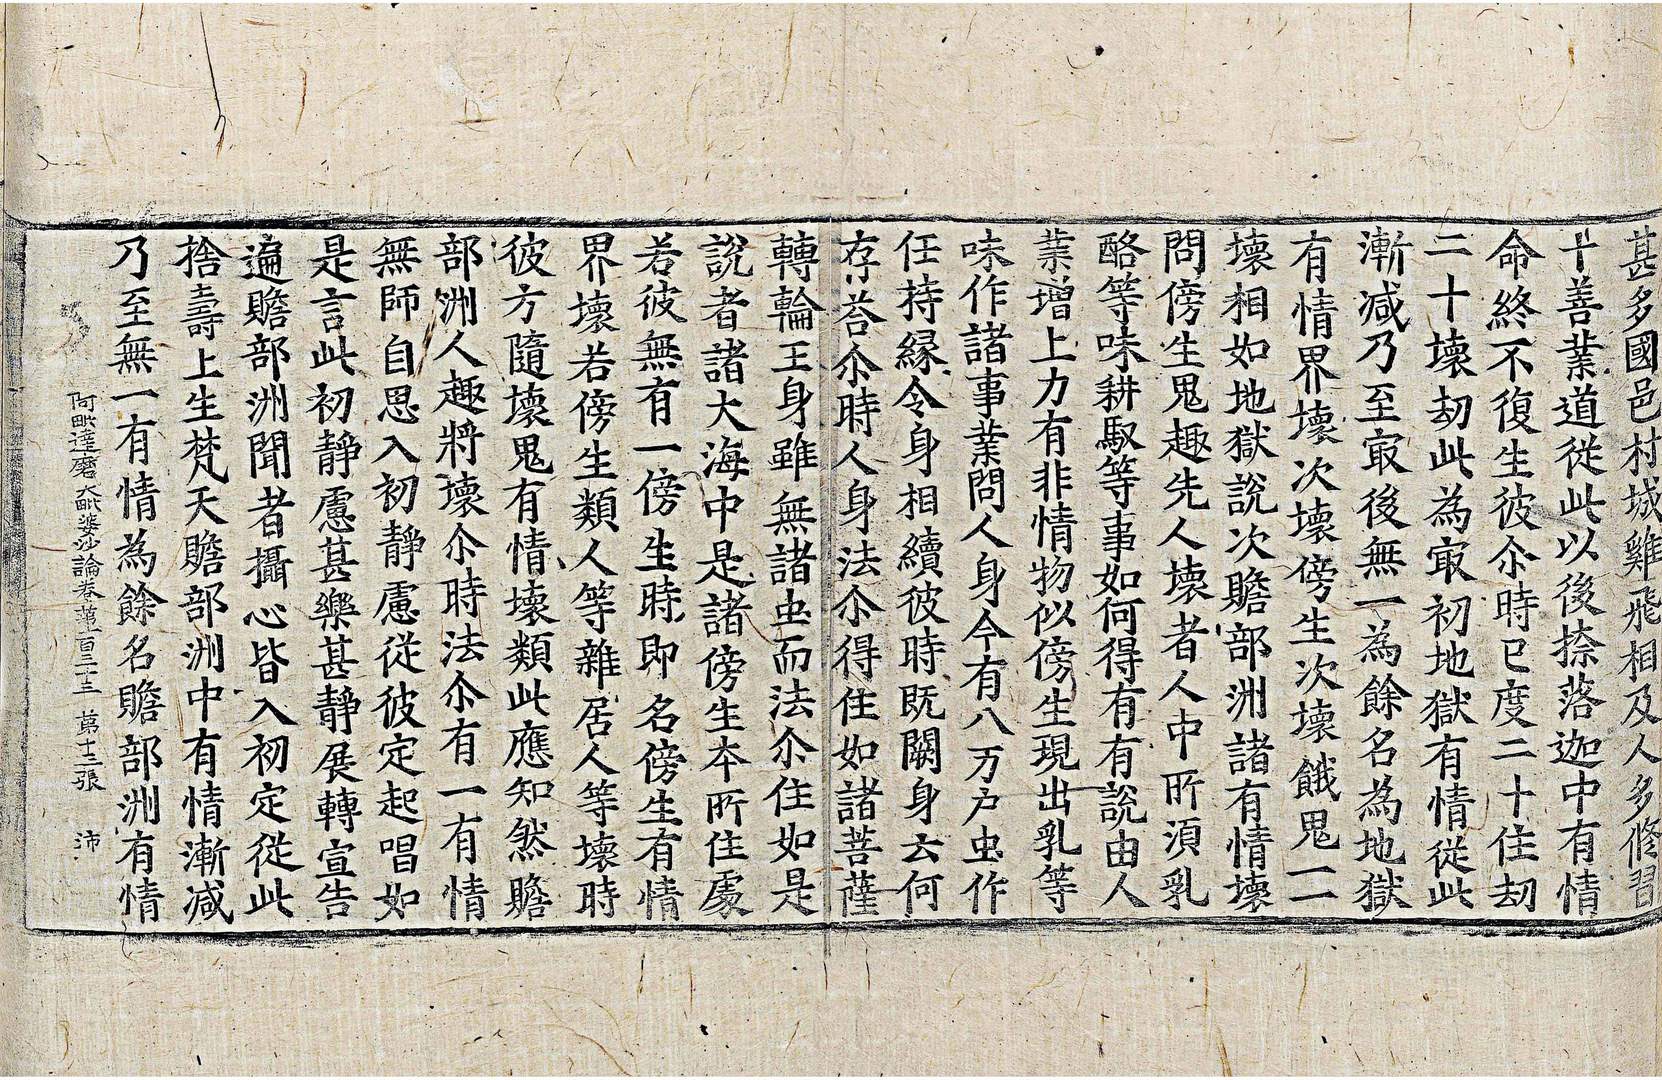 甚多國邑村城雞飛相及人多修習
十善業道從此以後捺落迦中有情
命終不復生彼尒時已度二十住劫
二十壞劫此為㝡初地獄有情從此
漸減乃至㝡後無一為餘名為地獄
有情界壞次壞傍生次壞餓鬼一一
壞相如地獄說次贍部洲諸有情壞
問傍生鬼趣先人壞者人中所湏乳
酪等味耕馭等事如何得有有說由人
業增上力有非情物似傍生現出乳等
味作諸事業問人身今有八万户虫作
任持縁令身相續彼時既闕身云何
存荅尒時人身法尒得住如諸菩薩
轉輪王身雖無諸虫而法尒住如是
說者諸大海中是諸傍生本所住處
若彼無有一傍生時即名傍生有情
界壞若傍生類人等雜居人等壞時
彼方隨壞鬼有情壞類此應知然贍
部洲人趣將壞尒時法尒有一有情
無師自思入初靜慮從彼定起唱如
是言此初靜慮甚樂甚靜展轉宣告
遍贍部洲聞者攝心皆入初定從此
捨壽上生梵天贍部洲中有情漸減
乃至無一有情為餘名贍部洲有情
阿毗達磨大毗婆沙論卷第一百三十三 第十三張 沛